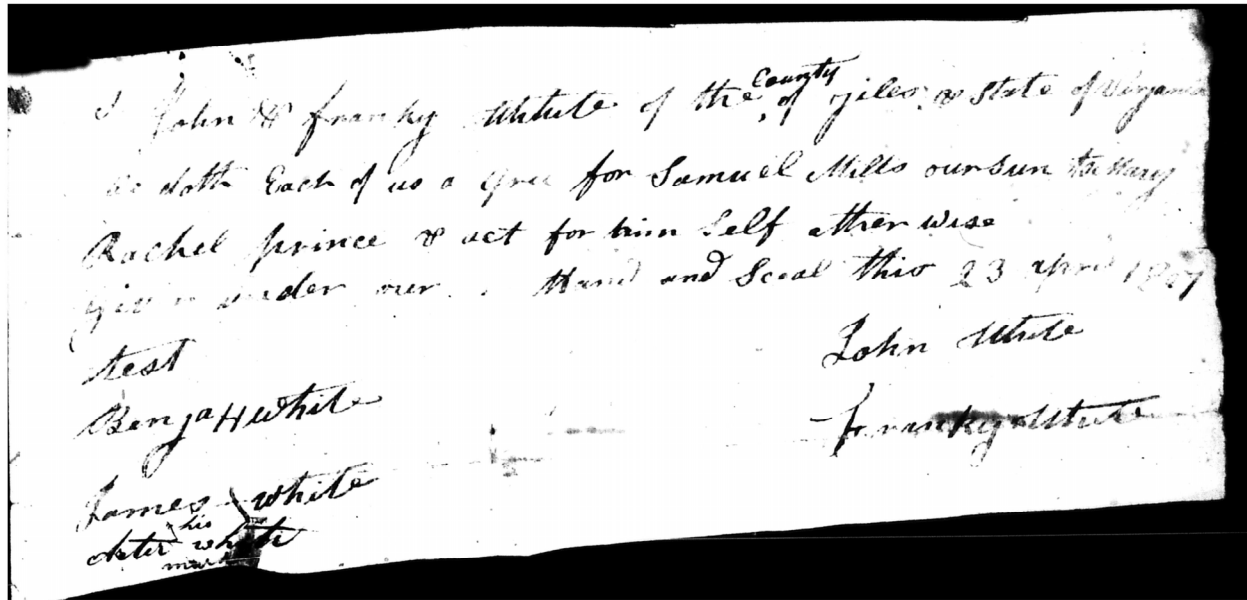 I John & franky White of the County of Giles & State of Virgania
do doth Each of us a Gree for Samuel Mills our Sun to Mary
Rachel prince & act for him Self other wise
Given under our Hand and Seeal this 23 april 1807
test
John White
Benja H White
Franky White
James White
his
White
mark